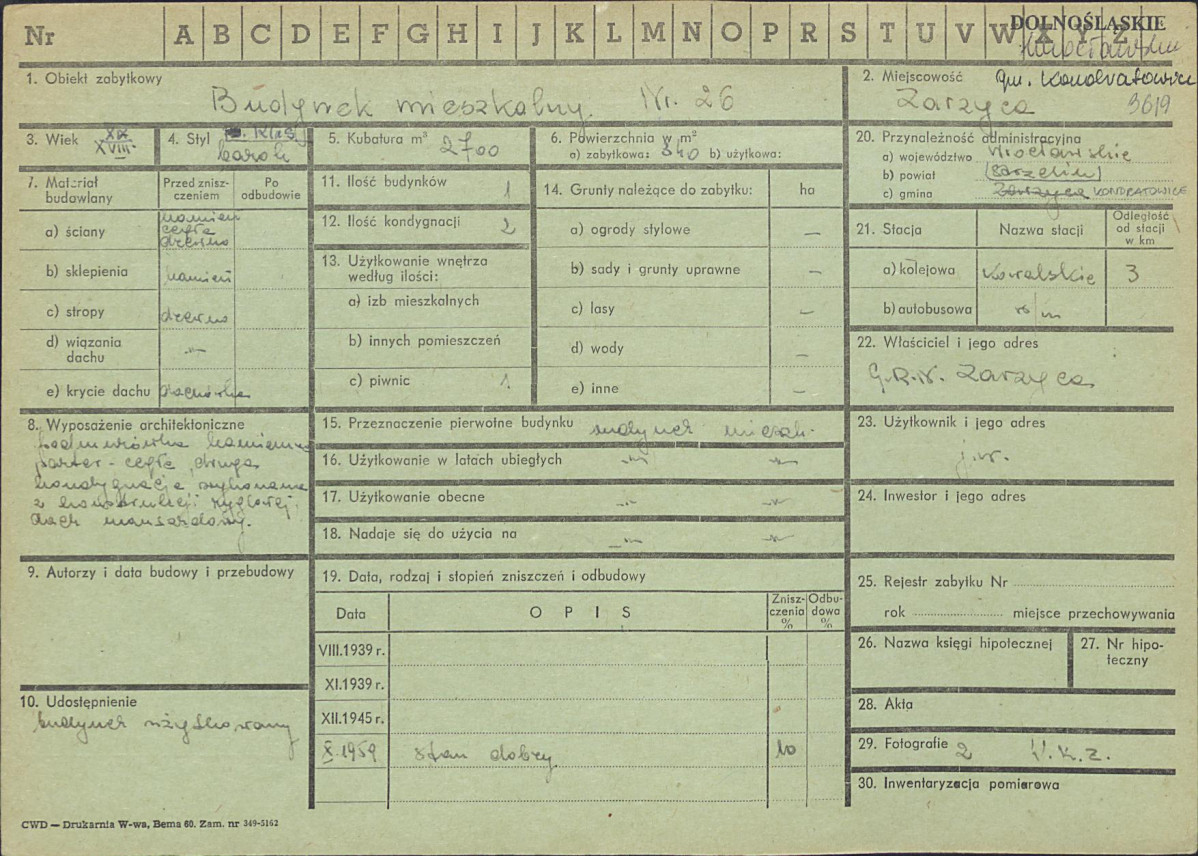 Nr A B C D E F G H I J K L M N O P R S T U V W X Y Z
DOLNOŚLĄSKIE
1. Obiekt zabytkowy
Budynek mieszkalny Nr. 26
2. Miejscowość gm. Kondratowice
Zarzyca 3619
3. Wiek XIX
XVIII
4. Styl klas.
barok
5. Kubatura m³ 2700
6. Powierzchnia w m²
a) zabytkowa: 540 b) użytkowa:
20. Przynależność administracyjna
a) województwo Wrocławskie
b) powiat (Strzelin)
c) gmina Zarzyca KONDRATOWICE
7. Materiał budowlany
Przed zniszczeniem
Po odbudowie
a) ściany kamień
cegła
drewno
b) sklepienia kamień
c) stropy drewno
d) wiązania dachu -"-
e) krycie dachu dachówka
11. Ilość budynków 1
12. Ilość kondygnacji 2
13. Użytkowanie wnętrza
według ilości:
a) izb mieszkalnych
b) innych pomieszczeń
c) piwnic 1
14. Grunty należące do zabytku: ha
a) ogrody stylowe —
b) sady i grunty uprawne —
c) lasy —
d) wody —
e) inne —
21. Stacja Nazwa stacji Odległość od stacji w km
a) kolejowa Kowalskie 3
b) autobusowa w/m
22. Właściciel i jego adres
G.R.N. Zarzyca
8. Wyposażenie architektoniczne
podmurówka kamienna
parter - cegła, druga
kondygnacja wykonana
z konstrukcji ryglowej,
dach mansardowy.
15. Przeznaczenie pierwotne budynku budynek mieszk.
16. Użytkowanie w latach ubiegłych -"- -"-
17. Użytkowanie obecne -"- -"-
18. Nadaje się do użycia na -"- -"-
23. Użytkownik i jego adres
j.w.
24. Inwestor i jego adres
9. Autorzy i data budowy i przebudowy
19. Data, rodzaj i stopień zniszczeń i odbudowy
Data O P I S Zniszczenia % Odbudowa %
VIII.1939 r.
XI.1939 r.
XII.1945 r.
X.1959 stan dobry 10
25. Rejestr zabytku Nr
rok miejsce przechowywania
26. Nazwa księgi hipotecznej
27. Nr hipoteczny
10. Udostępnienie
budynek użytkowany
28. Akta
29. Fotografie 2 W.K.Z.
30. Inwentaryzacja pomiarowa
CWD — Drukarnia W-wa, Bema 60. Zam. nr 349-5162